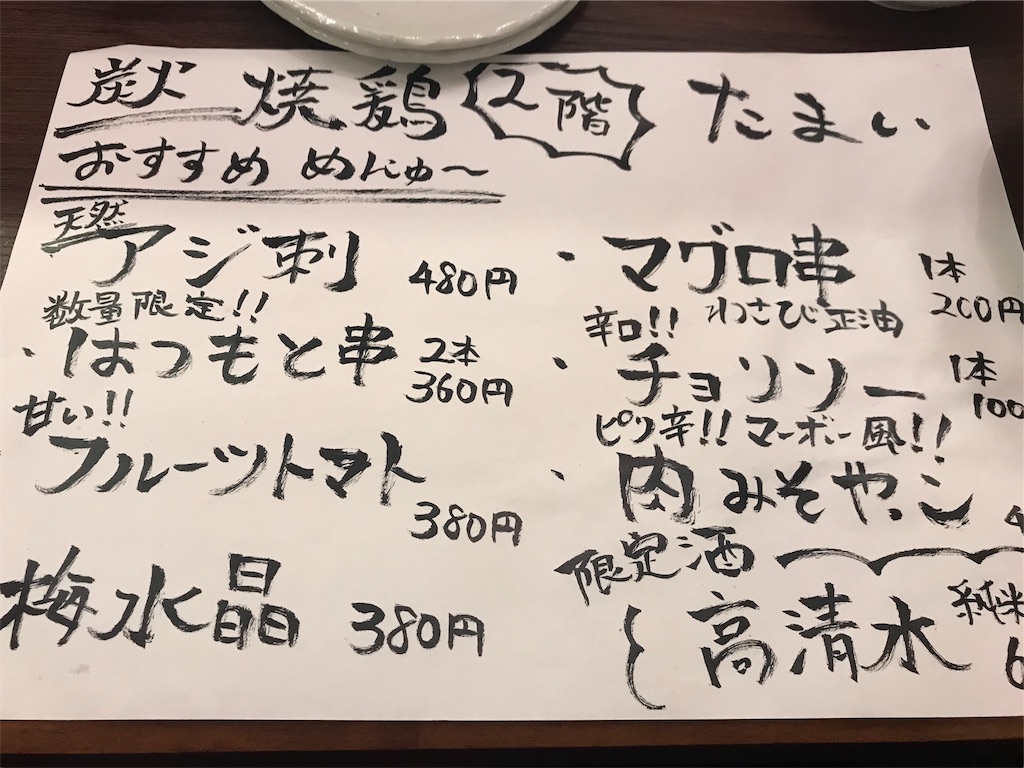 炭火 焼鶏 2階 たまい
おすすめ めにゅ〜
天然
アジ刺 480円
数量限定!!
・はつもと串 2本 360円
甘い!!
フルーツトマト 380円
梅水晶 380円
・マグロ串 1本 200円
わさび正油
辛口!!
・チョリソー 1本 100
ピリ辛!! マーボー風!!
・肉みそやっこ 4
限定酒
高清水 純米 6